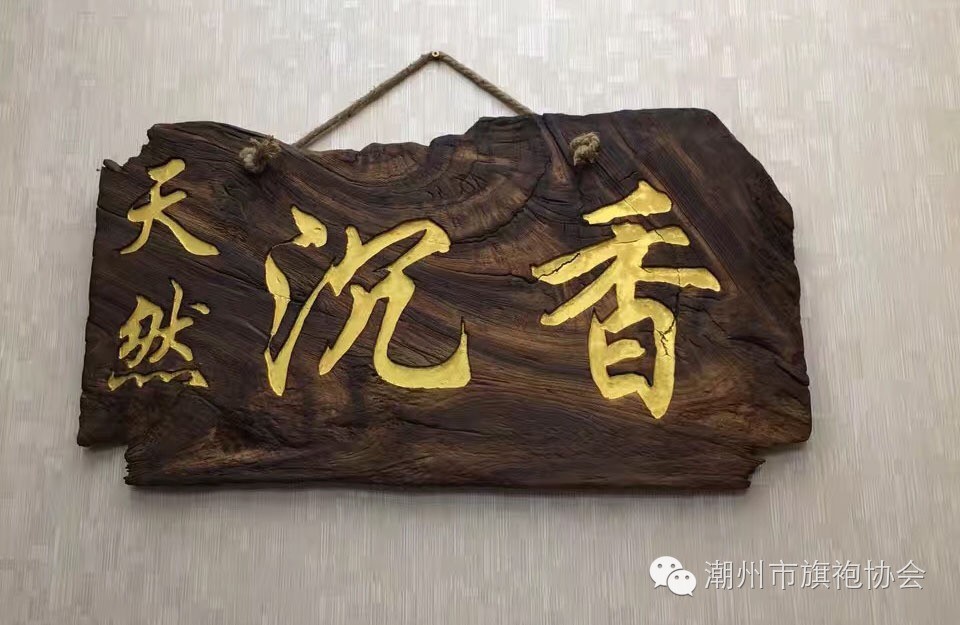 天然
沉香
潮州市旗袍协会